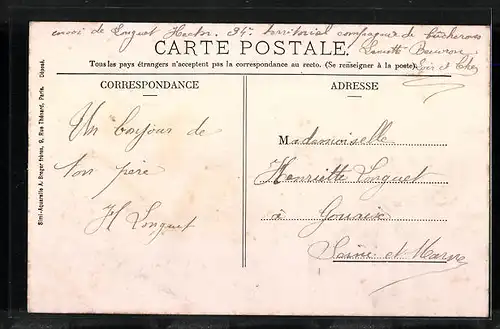 envoi de Longuet Hector. 34e territorial compagnie de bûcherons
CARTE POSTALE.
Lamotte-Beuvron
Tous les pays étrangers n'acceptent pas la correspondance au recto. (Se renseigner à la poste).
Loir et Cher
CORRESPONDANCE
ADRESSE
Un bonjour de
ton père
H Longuet
Mademoiselle
Henriette Longuet
à Gouaix
Seine-et-Marne
Simi-Aquarelle A. Breger frères, 9, Rue Thénard, Paris. Déposé.